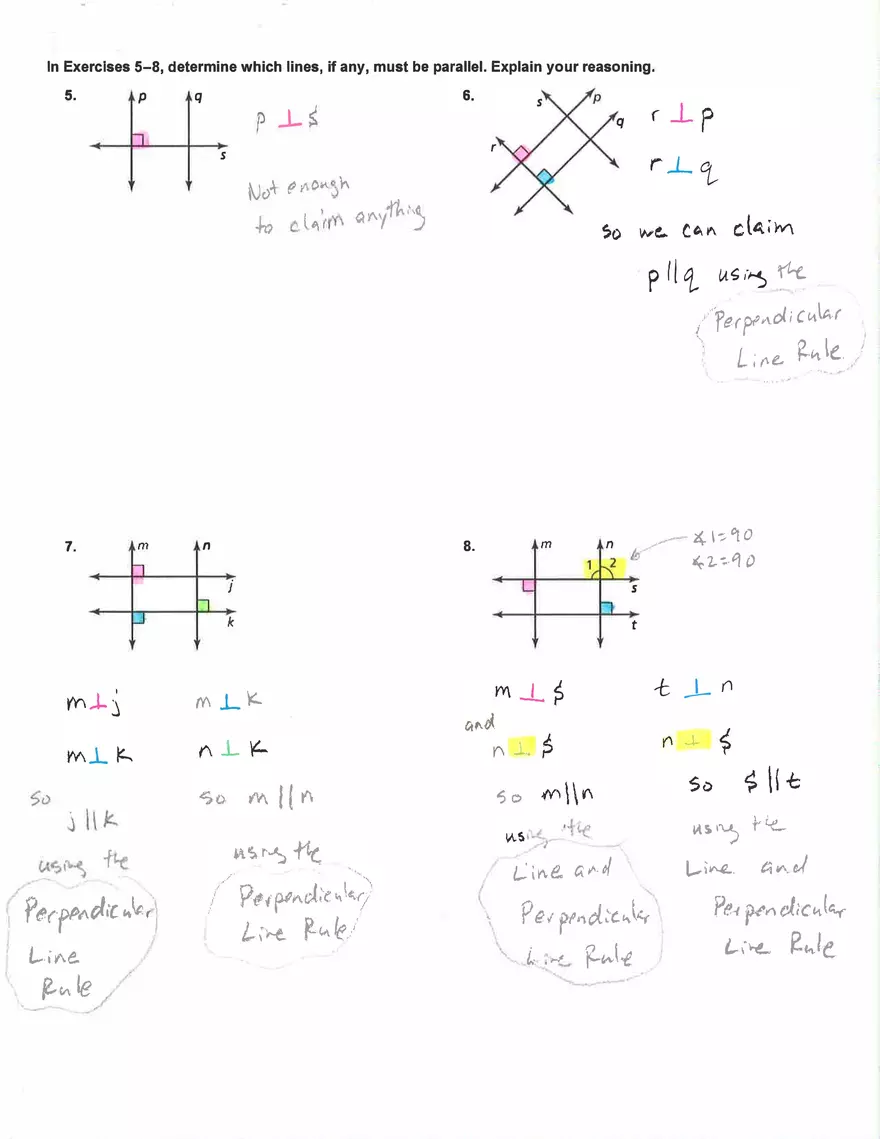 In Exercises 5–8, determine which lines, if any, must be parallel. Explain your reasoning.
5.
p
q
s
p ⊥ $
Not enough
to claim anything
6.
s
p
q
r
r ⊥ p
r ⊥ q
so we can claim
p||q using the
Perpendicular
Line Rule.
7.
m
n
j
k
m⊥j
m⊥k
so
j||k
using the
Perpendicular
Line
Rule
m ⊥ k
n ⊥ k
so m||n
using the
Perpendicular
Line Rule
8.
m
n
1 2
s
t
∡1=90
∡2=90
m ⊥ $
and
n ⊥ $
so m||n
using the
Line and
Perpendicular
Line Rule
t ⊥ n
n ⊥ $
so $||t
using the
Line and
Perpendicular
Line Rule